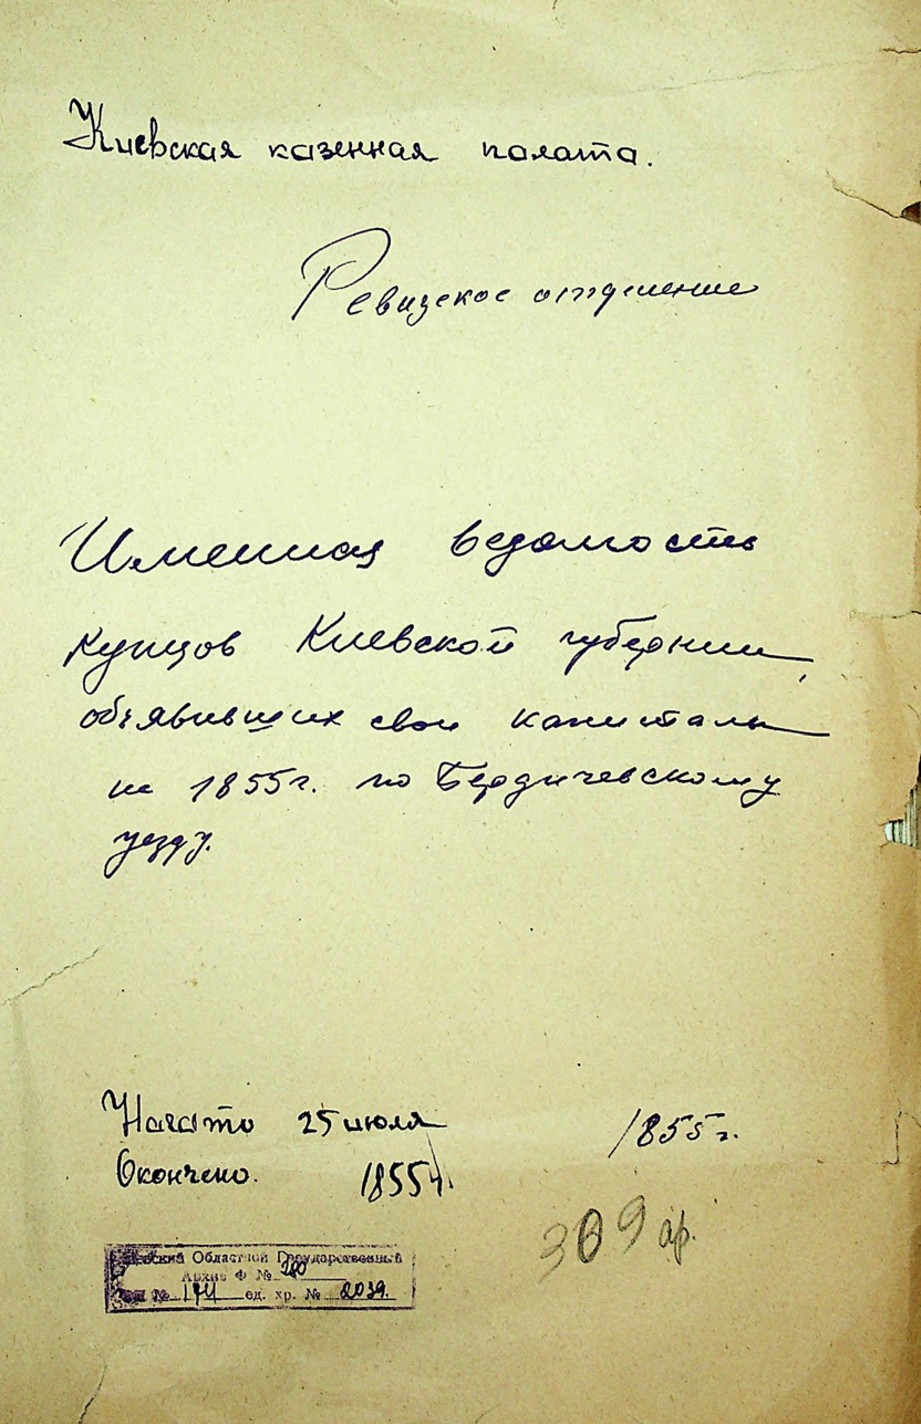 Киевская казенная палата.
Ревизское отделение
Именная ведомость
купцов Киевской губернии,
объявивших свои капиталы
на 1855г. по Бердичевскому
уезду.
Начато 25 июля 1855г.
Окончено. 1855г.
309 ар.
Киевский Областной Государственный
Архив Ф № 280
№ ед. хр. № 2039.